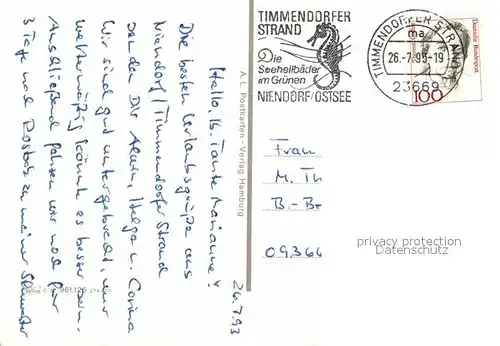 26.7.93
Hallo, lb. Tante Marianne!
Die besten Urlaubsgrüße aus
Niendorf / Timmendorfer Strand
senden Dir Alwin, Helga u. Corina
Wir sind gut untergebracht, nur
wettermäßig könnte es besser sein.
Anschließend fahren wir noch für
3 Tage nach Rostock zu meiner Schwester
A.L. Postkarten - Verlag Hamburg
961.126
TIMMENDORFER
STRAND
Die
Seeheilbäder
im Grünen
NIENDORF/OSTSEE
TIMMENDORFER STRAND
ma
26.-7.93-19
23669
Deutsche Bundespost
100
Frau
M. Th
B.-Br
09366
privacy protection
Datenschutz